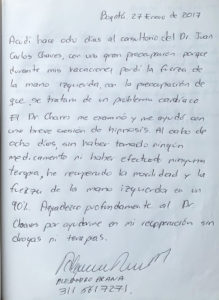 Bogotá 27 Enero de 2017
Acudí hace ocho días al consultorio del Dr. Juan
Carlos Chaves, con una gran preocupación porque
durante mis vacaciones perdí la fuerza de
la mano izquierda, con la preocupación de
que se tratara de un problema cardíaco
El Dr Chaves me examinó y me ayudó con
una breve sesión de hipnosis. Al cabo de
ocho días, sin haber tomado ningún
medicamento ni haber efectuado ninguna
terapia, he recuperado la movilidad y la
fuerza de la mano izquierda en un
90%. Agradezco profundamente al Dr
Chaves por ayudarme en mi recuperación sin
drogas ni terapias.
ARANA
311 5617271